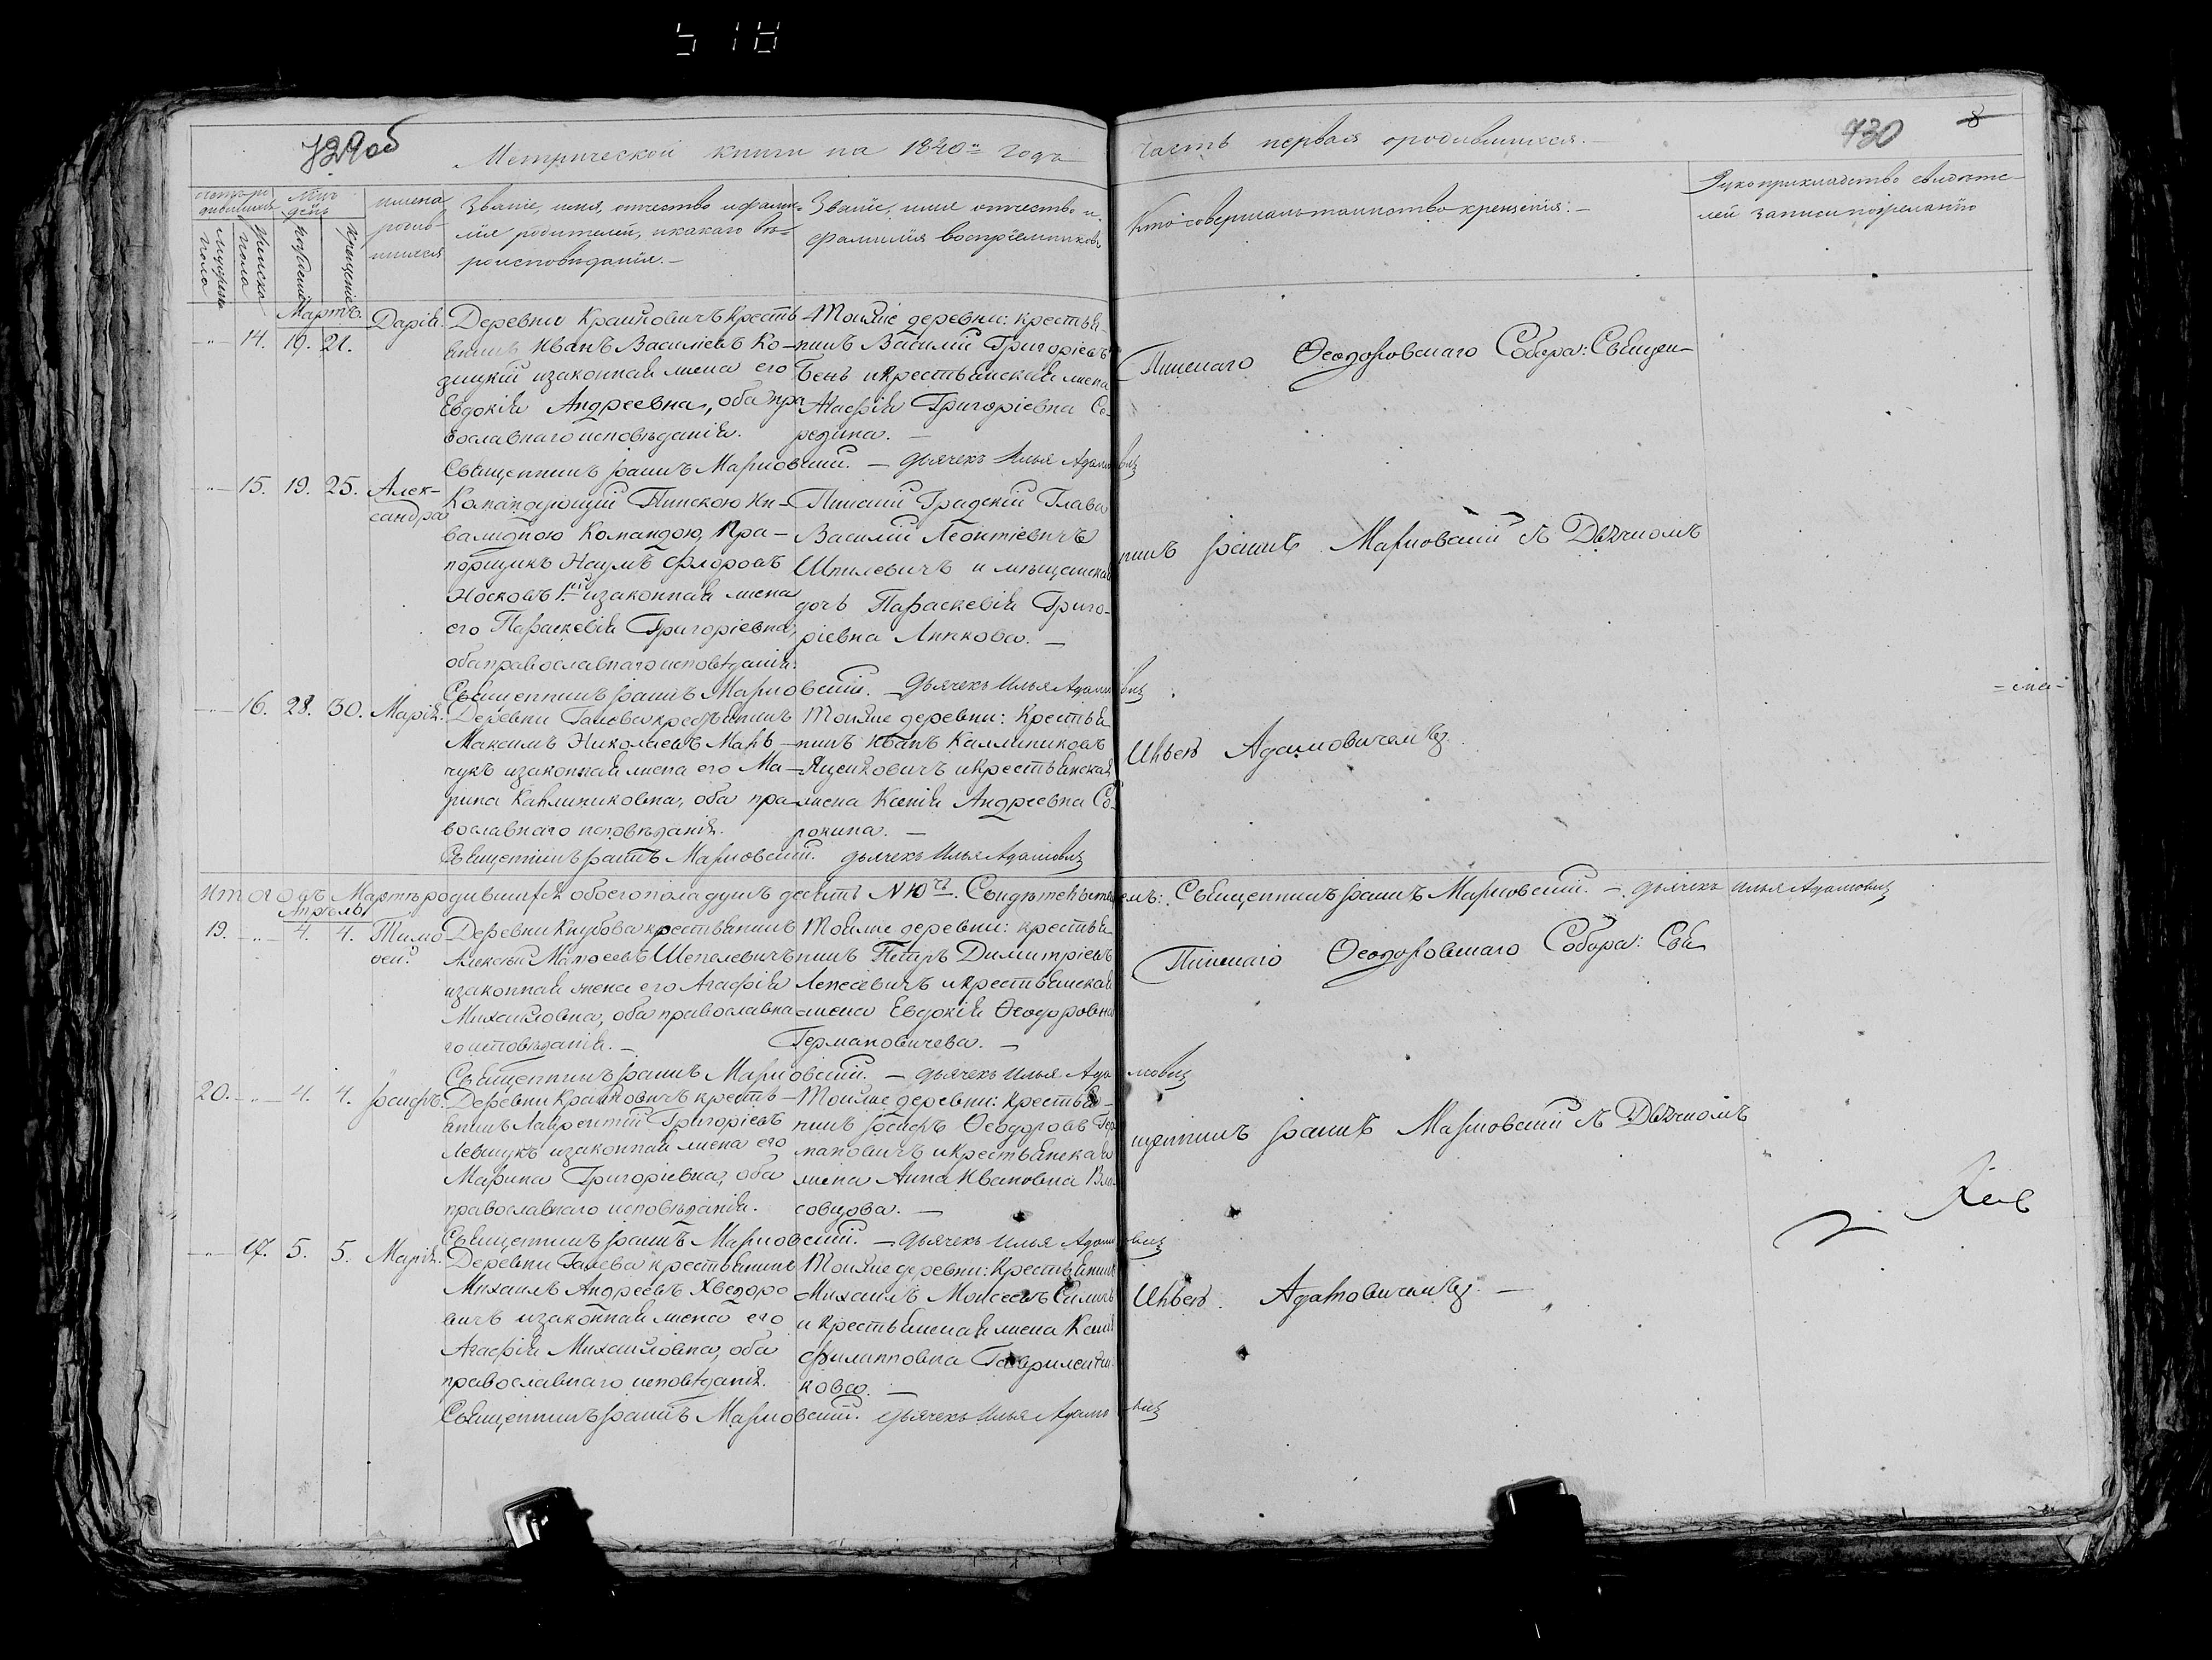 518
729об
Метрической книги на 1840й года
часть первая о родившихся. —
730
8
Счетъ ро-
дившихся
Мужеска
пола
Женска
пола
Мцъ
День
рожденія
крещенія
имена
родив-
шихся
Званіе, имя, отчество и фами-
лія родителей, и какого вѣ-
роисповѣданія. —
Званіе, имя отчество и
фамилія воспріемниковъ
Кто совершалъ таинство крещенія: —
Рукоприкладство свидѣте-
лей записи по желанію
Мартъ.
14. 19. 21.
Дарія.
Деревни Крайновичъ кресть-
янинъ Иванъ Василіевъ Ко-
зицкій и законная жена его
Евдокія Андреевна, оба пра
вославнаго исповѣданія.
Тойже деревни: крестья-
нинъ Василій Григоріевъ
Бень и крестьянская жена
Агафія Григоріевна Се-
редина. —
Священникъ Іоаннъ Марковскій. — Дьячекъ Илья Адамовичъ
Пинскаго Ѳеодоровскаго Собора: Священ-
никъ Іоаннъ Марковскій съ Дьячкомъ
Ильею Адамовичемъ.
15. 19. 25.
Алек-
сандра
Командующій Пинскою Ин-
валидною Командою, Пра-
порщикъ Наумъ Флоровъ
Носковъ 1й и законная жена
его Параскевія Григоріевна,
оба православнаго исповѣданія.
Пинскій Градскій Глава
Василій Леонтіевичъ
Шпилевичъ и мѣщанская
дочь Параскевія Григо-
ріевна Липкова. —
Священникъ Іоаннъ Марковскій. — Дьячекъ Илья Адамовичъ
16. 28. 30.
Марія.
Деревни Галева крестьянинъ
Максимъ Николаевъ Марь-
чукъ и законная жена его Ма-
рина Каллиниковна, оба пра-
вославнаго исповѣданія.
Тойже деревни: Крестья-
нинъ Иванъ Каллиниковъ
Яцейковичъ и Крестьянская
жена Ксенія Андреевна Со-
рокина. —
Священникъ Іоаннъ Марковскій. Дьячекъ Илья Адамовичъ
Итого въ Мартѣ родившихся обоего пола душъ десять N 10ть. Свидѣтельствуемъ: Священникъ Іоаннъ Марковскій. — дьячекъ Илья Адамовичъ
Апрѣль
19. 4. 4.
Тимо
ѳей.
Деревни Кнубова крестьянинъ
Алексѣй Матѳеевъ Шепелевичъ
и законная жена его Агафія
Михайловна, оба православна
го исповѣданія. —
Тойже деревни: крестья
нинъ Петръ Димитріевъ
Лепесевичъ и крестьянская
жена Евдокія Ѳеодоровна
Германовичева. —
Священникъ Іоаннъ Марковскій. — дьячекъ Илья Адамовичъ
Пинскаго Ѳеодоровскаго Собора: Свя
щенникъ Іоаннъ Марковскій съ Дьячкомъ
Ильею Адамовичемъ. —
20. 4. 4.
Іосифъ.
Деревни Крайновичъ кресть-
янинъ Лаврентій Григоріевъ
Левчукъ и законная жена его
Марина Григоріевна, оба
православнаго исповѣданія.
Тойже деревни: Крестья-
нинъ Іосифъ Ѳеодоровъ Гер
мановичъ и Крестьянская
жена Анна Ивановна Вло-
совцова. —
Священникъ Іоаннъ Марковскій. — Дьячекъ Илья Адамовичъ
17. 5. 5.
Марія.
Деревни Галева крестьянинъ
Михаилъ Андреевъ Хведоро
вичъ и законная жена его
Агафія Михайловна, оба
православнаго исповѣданія.
Тойже деревни: Крестьянинъ
Михаилъ Моисеевъ Силичъ
и крестьянская жена Ксенія
Филипповна Гаврилчи-
кова. —
Священникъ Іоаннъ Марковскій. Дьячекъ Илья Адамовичъ